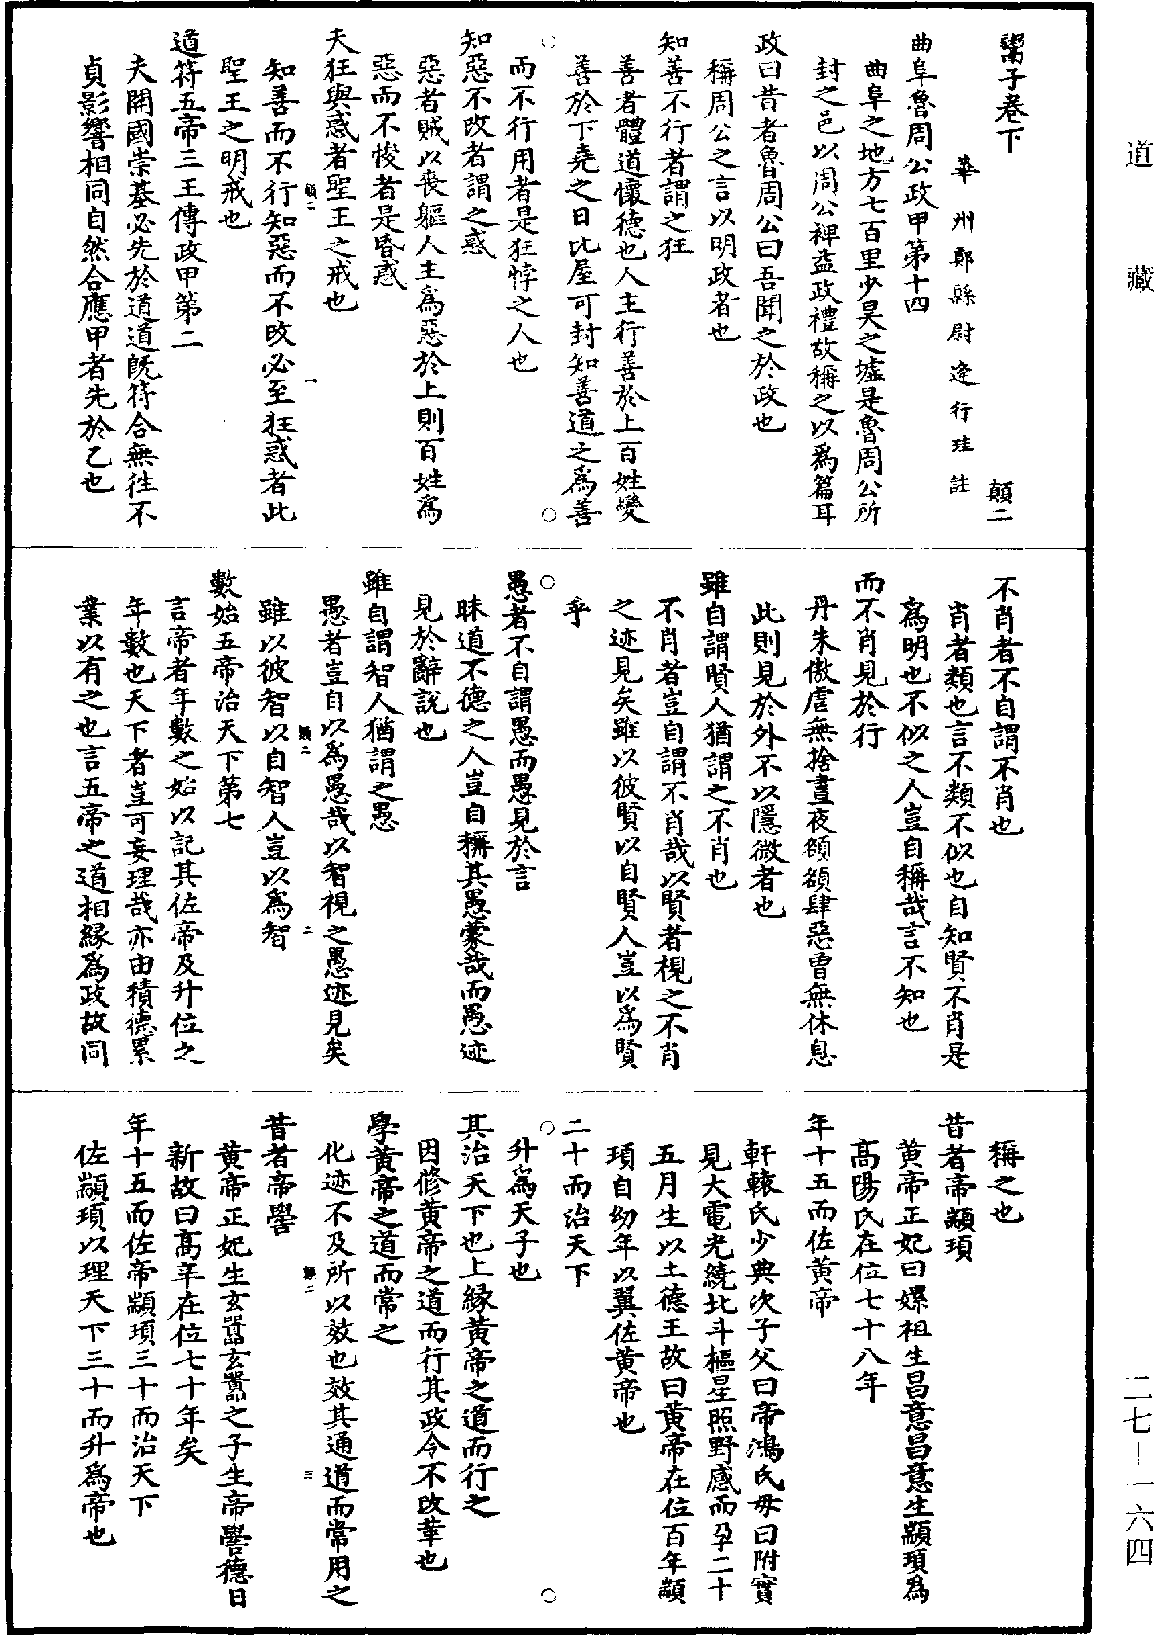 道藏
二七-一六四
鬻子卷下
顛二
華州鄭縣尉逄行珪註
曲阜魯周公政甲第十四
曲阜之地方七百里少昊之墟是魯周公所
封之邑以周公裨益政禮故稱之以為篇耳
政曰昔者魯周公曰吾聞之於政也
稱周公之言以明政者也
知善不行者謂之狂
善者體道懷德也人主行善於上百姓變
善於下堯之日比屋可封知善道之為善
而不行用者是狂悖之人也
知惡不改者謂之惑
惡者賊以喪軀人主為惡於上則百姓為
惡而不悛者是昏惑
夫狂與惑者聖王之戒也
顛二
一
知善而不行知惡而不改必至狂惑者此
聖王之明戒也
道符五帝三王傳政甲第二
夫開國崇基必先於道道既符合無往不
貞影響相同自然合應甲者先於乙也
不肖者不自謂不肖也
肖者類也言不類不似也自知賢不肖是
為明也不似之人豈自稱哉言不知也
而不肖見於行
丹朱傲虐無捨晝夜頟頟肆惡曾無休息
此則見於外不以隱微者也
雖自謂賢人猶謂之不肖也
不肖者豈自謂不肖哉以賢者視之不肖
之迹見矣雖以彼賢以自賢人豈以為賢
乎
愚者不自謂愚而愚見於言
昧道不德之人豈自稱其愚蒙哉而愚迹
見於辭說也
雖自謂智人猶謂之愚
愚者豈自以為愚哉以智視之愚迹見矣
顛二
二
雖以彼智以自智人豈以為智
數始五帝治天下第七
言帝者年數之始以記其佐帝及升位之
年數也天下者豈可妄理哉亦由積德累
業以有之也言五帝之道相緣為政故同
稱之也
昔者帝顓頊
黃帝正妃曰嫘祖生昌意昌意生顓頊為
高陽氏在位七十八年
年十五而佐黃帝
軒轅氏少典次子父曰帝鴻氏母曰附寶
見大電光繞北斗樞星照野感而孕二十
五月生以土德王故曰黃帝在位百年顓
頊自幼年以翼佐黃帝也
二十而治天下
升為天子也
其治天下也上緣黃帝之道而行之
因修黃帝之道而行其政令不改革也
學黃帝之道而常之
化迹不及所以效也效其通道而常用之
顛二
三
昔者帝嚳
黃帝正妃生玄囂玄囂之子生帝嚳德日
新故曰高辛在位七十年矣
年十五而佐帝顓頊三十而治天下
佐顓頊以理天下三十而升為帝也